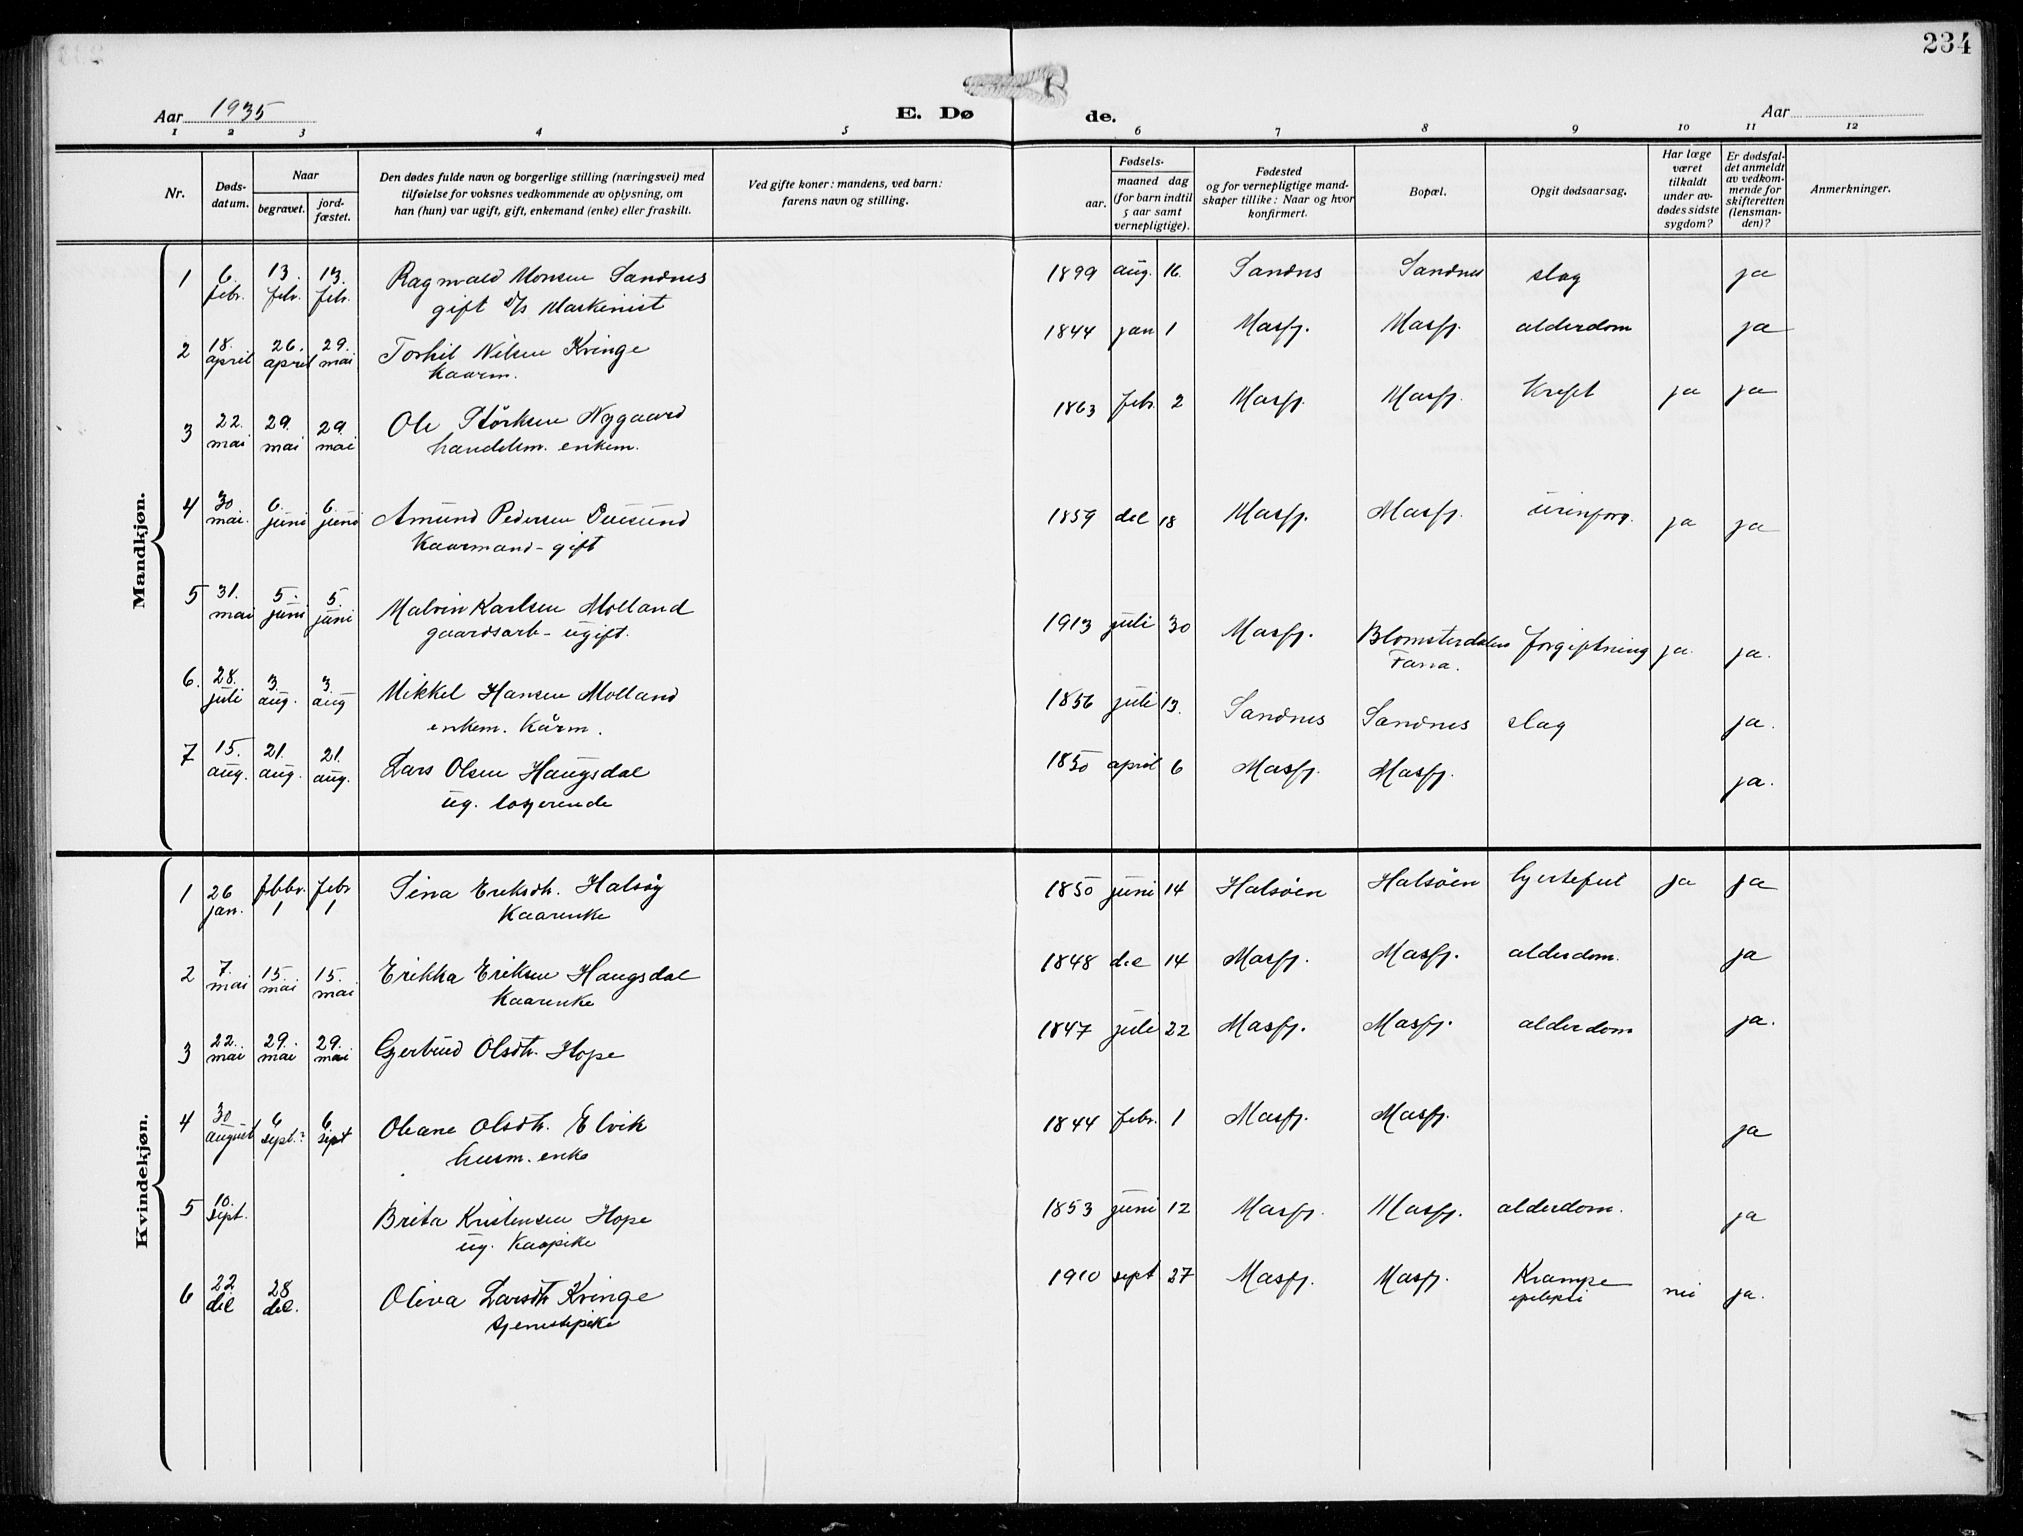 234
Aar 1935
E. Dø de.
Aar
1 2 3 4 5 6 7 8 9 10 11 12
Nr.
Døds-
datum.
Naar
begravet.
jord-
fæstet.
Den dødes fulde navn og borgerlige stilling (næringsvei) med
tilføielse for voksnes vedkommende av oplysning, om
han (hun) var ugift, gift, enkemand (enke) eller fraskilt.
Ved gifte koner: mandens, ved barn:
farens navn og stilling.
Fødsels-
aar.
maaned dag
(for barn indtil
5 aar samt
vernepligtige).
Fødested
og for vernepligtige mand-
skaper tillike: Naar og hvor
konfirmert.
Bopæl.
Opgit dødsaarsag.
Har læge
været
tilkaldt
under av-
dødes sidste
sygdom?
Er dødsfal-
det anmeldt
av vedkom-
mende for
skifteretten
(lensman-
den)?
Anmerkninger.
Mandkjøn.
1 6. febr. 13. febr. 13. febr. Ragnvald Monsen Sandnes 1899 aug. 16. Sandnes Sandnes slag ja
gift D/s Maskinist
2 18. april 26. april 29. mai Torkil Nilsen Kvinge 1844 jan 1 Masfj. Masfj. alderdom ja
Kaarm.
3 22. mai 29. mai 29. mai Ole Størksen Nygaard 1863 febr. 2 Masfj. Masfj. Kreft ja ja
handelsm. enkem.
4 30 mai. 6. juni 6. juni Amund Pedersen Duesund 1859 des 18 Masfj. Masfj. urinforg. ja ja
Kaarmand - gift
5 31. mai 5. juni 5. juni Malvin Karlsen Molland 1913 juli 30 Masfj. Blomsterdalen forgiftning ja. ja.
gaardsarb - ugift. Fana.
6. 28. juli 3 aug. 3 aug Mikkel Hansen Molland 1856 juli 13. Sandnes Sandnes slag ja.
enkem. Kårm.
7 15. aug. 21. aug. 21. aug. Lars Olsen Haugsdal 1850 april 6 Masfj. Masfj. ja.
ug. losjerende
Kvindekjøn.
1 26 jan. febr. 1 febr 1 Sina Eriksdtr. Halsøy 1850 juni 14 Halsøen Halsøen hjertefeil ja ja
Kaarenke
2 7. mai 15. mai 15. mai Erikka Eriksen Haugsdal 1848 des 14 Masfj. Masfj. alderdom. ja
Kaarenke
3 22. mai 29. mai 29. mai Gjertrud Olsdtr. Hope 1847 juli 22 Masfj. Masfj. alderdom ja.
4 30 august 6 sept. 6 sept Oleane Olsdtr. Elvik 1844 febr. 1 Masfj. Masfj. ja
husm. enke
5 10. sept. Brita Kristensen Hope 1853 juni 12 Masfj. Masfj. alderdom. ja
ug. Kaarpike
6 22. des 28 des. Oliva Larsdtr Kvinge 1910 sept 27 Masfj. Masfj. Krampe nei ja.
tjenestepike epilepsi